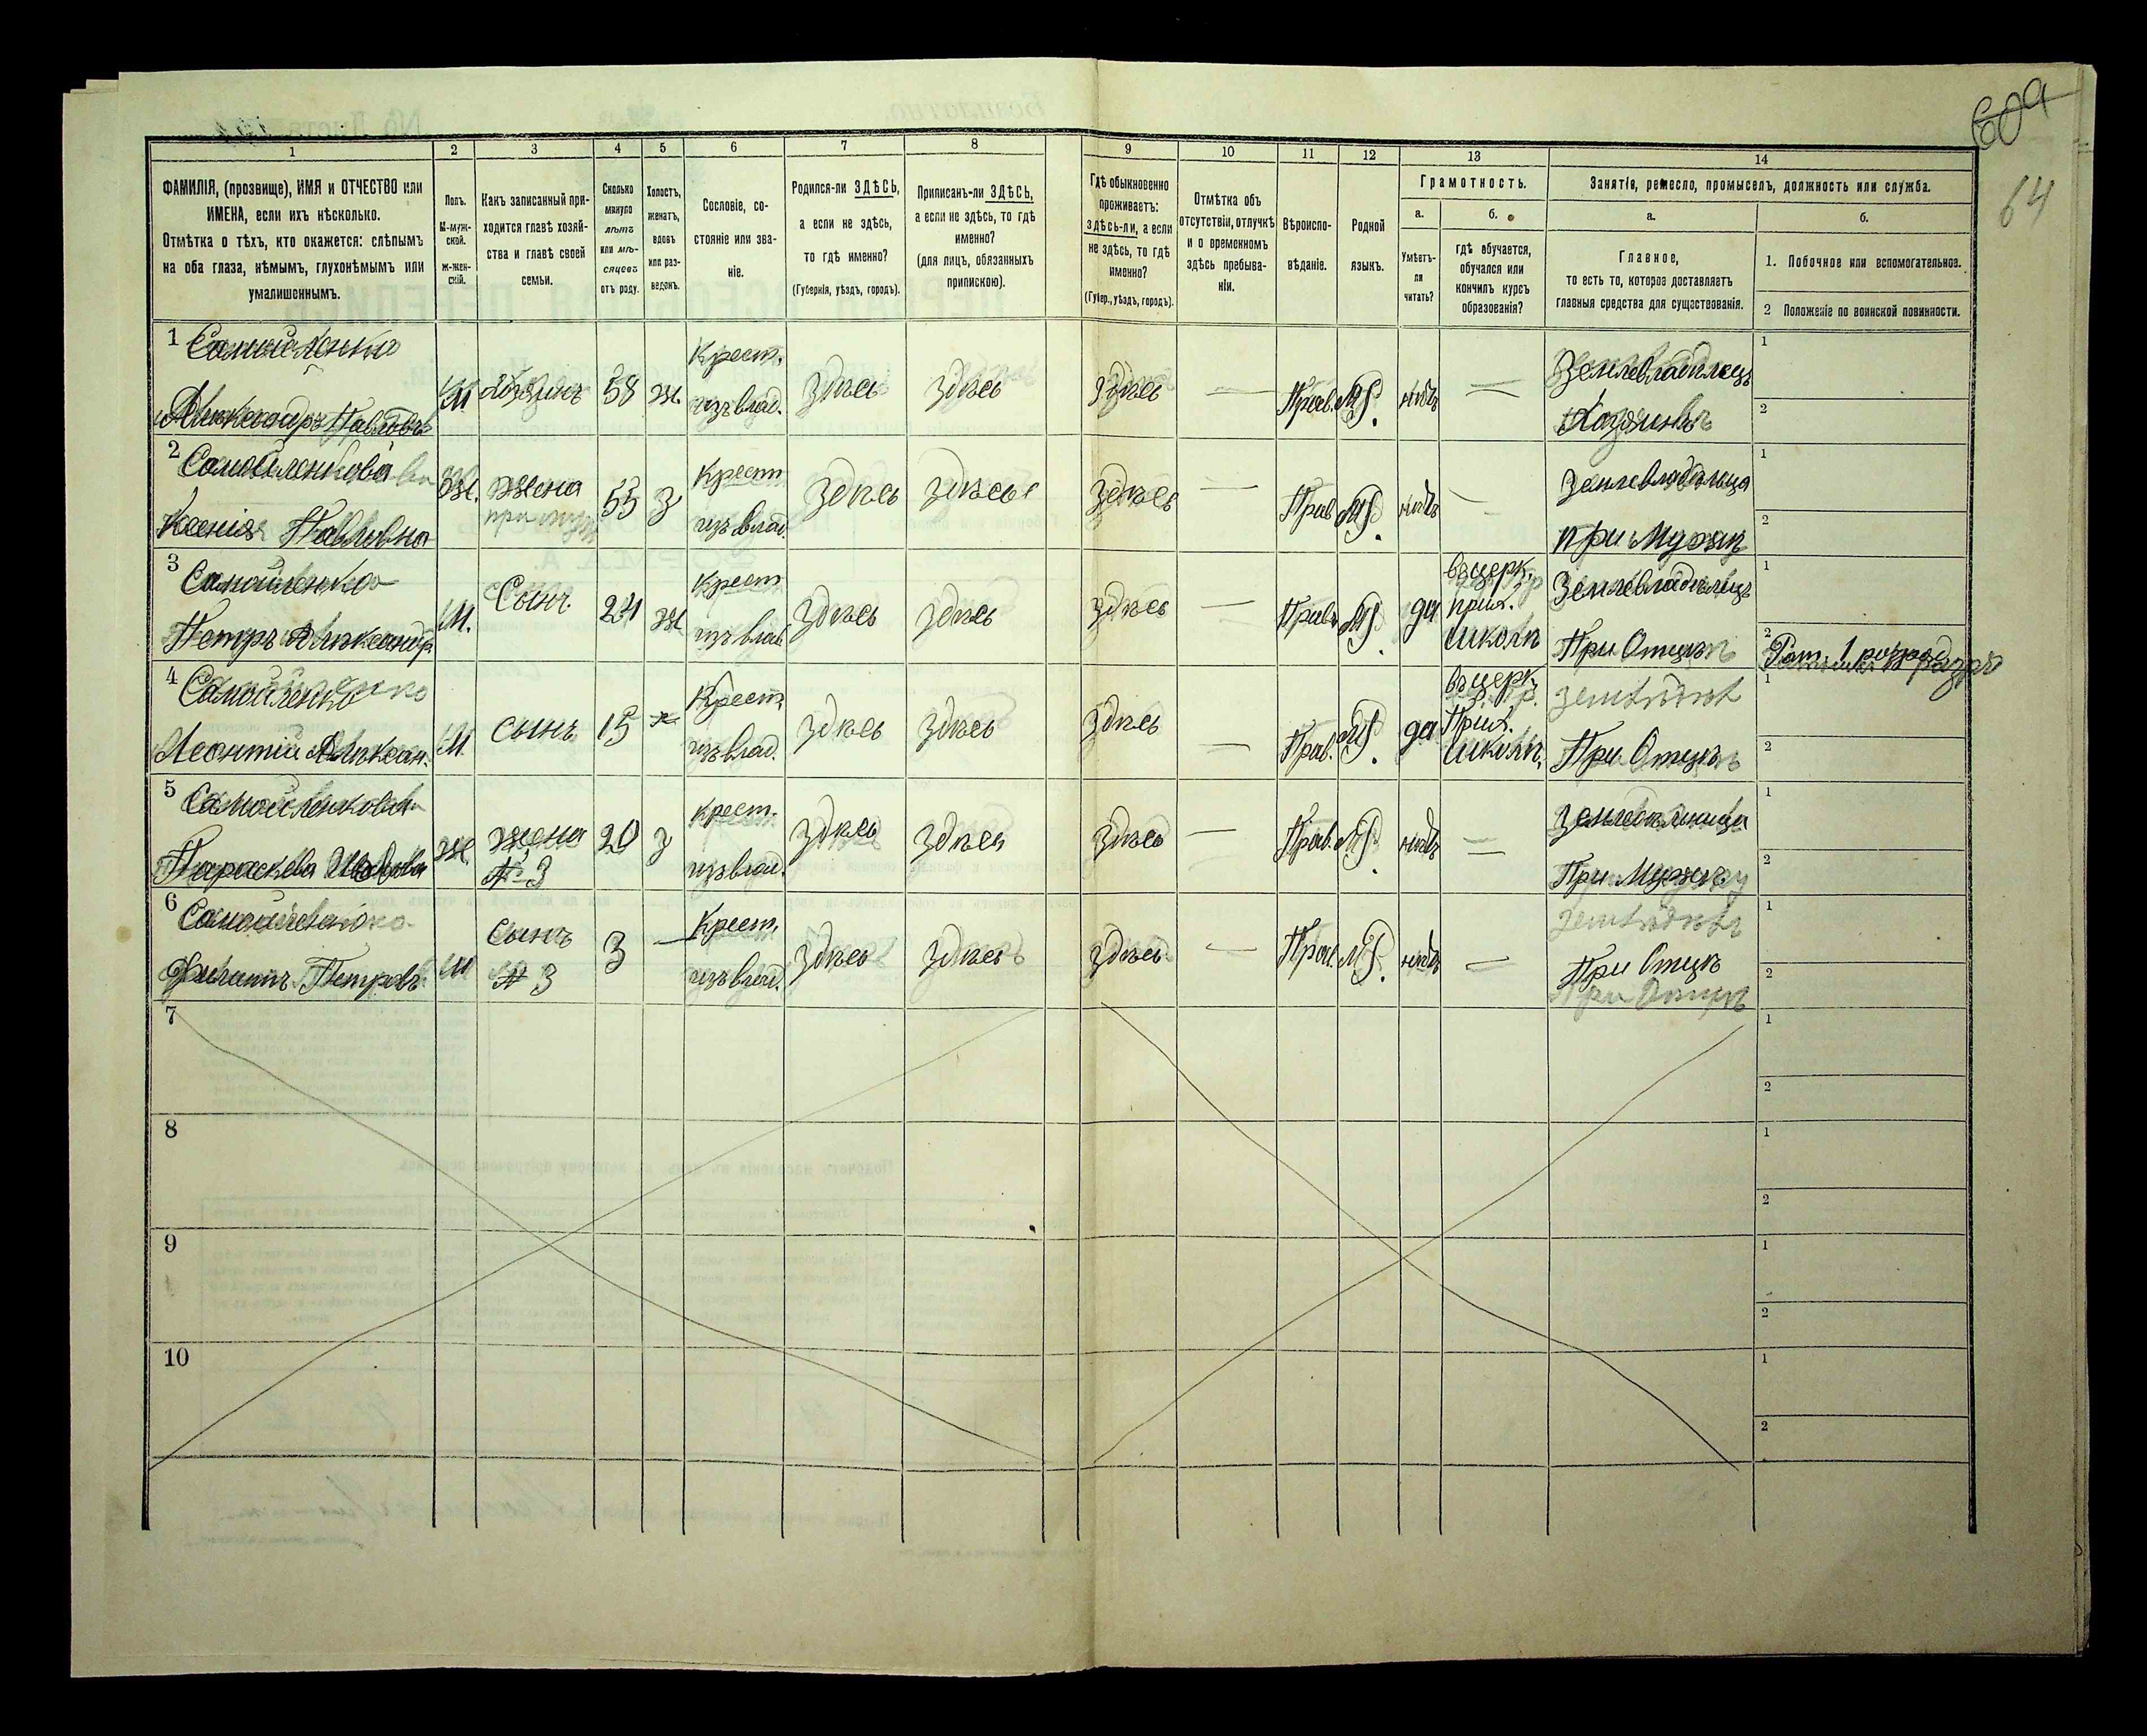 60а
64
1 2 3 4 5 6 7 8 9 10 11 12 13 14
ФАМИЛІЯ, (прозвище), ИМЯ и ОТЧЕСТВО или
ИМЕНА, если ихъ нѣсколько.
Отмѣтка о тѣхъ, кто окажется: слѣпымъ
на оба глаза, нѣмымъ, глухонѣмымъ или
умалишеннымъ.
Полъ.
М-муж-
ской.
Ж-жен-
скій.
Какъ записанный при-
ходится главѣ хозяй-
ства и главѣ своей
семьи.
Сколько
минуло
лѣтъ
или мѣ-
сяцевъ
отъ роду.
Холостъ,
женатъ,
вдовъ
или раз-
веденъ.
Сословіе, со-
стояніе или зва-
ніе.
Родился-ли ЗДѢСЬ,
а если не здѣсь,
то гдѣ именно?
(Губернія, уѣздъ, городъ).
Приписанъ-ли ЗДѢСЬ,
а если не здѣсь, то гдѣ
именно?
(для лицъ, обязанныхъ
припискою).
Гдѣ обыкновенно
проживаетъ:
здѣсь-ли, а если
не здѣсь, то гдѣ
именно?
(Губер., уѣздъ, городъ).
Отмѣтка объ
отсутствіи, отлучкѣ
и о временномъ
здѣсь пребыва-
ніи.
Вѣроиспо-
вѣданіе.
Родной
языкъ.
Грамотность.
а.
Умѣетъ-
ли
читать?
б.
гдѣ обучается,
обучался или
кончилъ курсъ
образованія?
Занятіе, ремесло, промыселъ, должность или служба.
а.
Главное,
то есть то, которое доставляетъ
главныя средства для существованія.
б.
1. Побочное или вспомогательное.
2 Положеніе по воинской повинности.
1 Самойленко
Александръ Павловъ
М
хозяинъ
58
ж.
Крест.
изъ влад.
здѣсь
здѣсь
здѣсь
—
Прав.
МР.
нѣтъ
—
Землевладѣлецъ
Хозяинъ
1
2
2 Самойленкова
Ксенія Павловна
Ж.
жена
55
з
Крест
изъ влад.
здѣсь
здѣсь
здѣсь
—
Прав
МР.
нѣтъ
—
при Мужѣ
1
2
3 Самойленко
Петръ Александр.
М.
Сынъ
24
ж
Крест
изъ влад
здѣсь
здѣсь
здѣсь
—
Прав
МР.
да
въ церк.
прих.
школѣ
Землевладѣлецъ
При Отцѣ
1
2 Рат. 1 разряд
4 Самойленко
Леонтій Алексан.
М
сынъ
15
х
Крест.
изъ влад.
здѣсь
здѣсь
здѣсь
—
Прав.
МР.
да
въ церк.
Прих.
школѣ.
При Отцѣ
1
2
5 Самойленкова
Параскева
Ж.
жена
№ 3
20
з
Крест.
изъ влад.
здѣсь
здѣсь
здѣсь
—
Прав.
МР.
нѣтъ
—
При Мужѣ
1
2
6 Самойленко
Филиппъ Петровъ
М
сынъ
№ 3
3
—
Крест.
изъ влад.
здѣсь
здѣсь
здѣсь
—
Прав.
МР.
нѣтъ
—
При Отцѣ
1
2
7
1
2
8
1
2
9
1
2
10
1
2